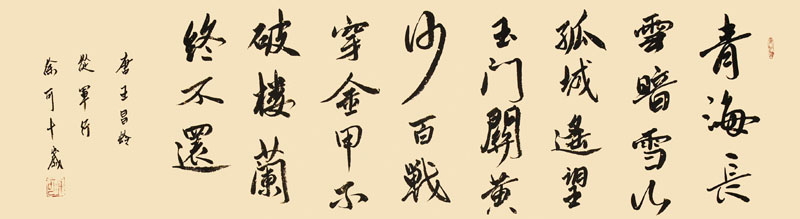 青海長
雲暗雪山
孤城遙望
玉門關黃
沙百戰
穿金甲不
破樓蘭
終不還
唐王昌齡
從軍行